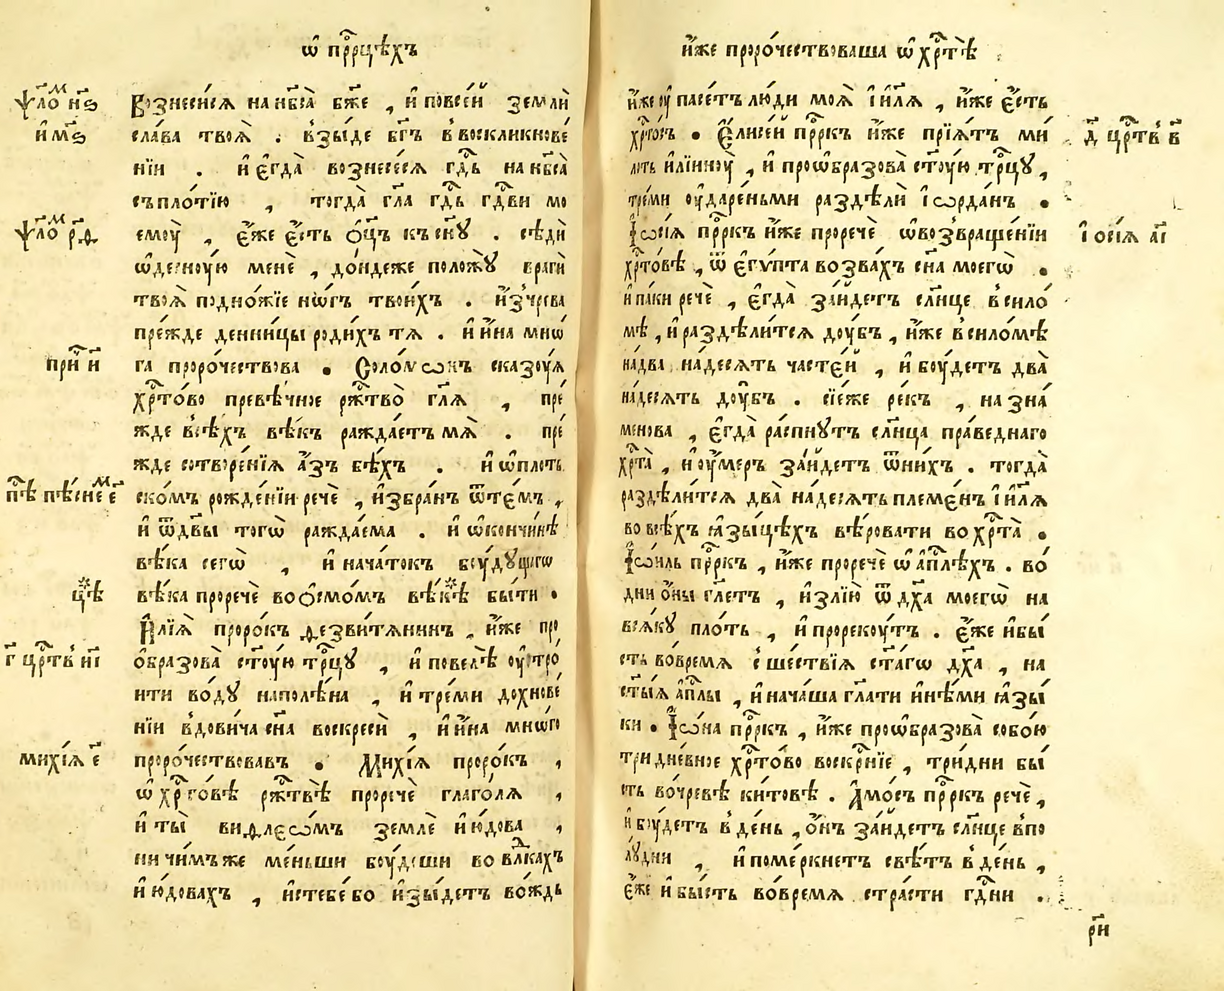 ѡ҆ прⷪ҇рцѣхъ
ѱало́мъ н҃ѕ
и҆ м҃ѕ
Вознеси́сѧ на нб҃са̀ бж҃е , и҆ повсе́й землѝ
сла́ва твоѧ̀ . взы́де бг҃ъ в воскликнове́
нїи . и҆ є҆гда̀ вознесе́сѧ гдⷭ҇ь на нб҃са̀
съпло́тїю , тогда̀ гл҃а гдⷭ҇ь гдⷭ҇ви мо
ѱало́мъ р҃ѳ
емоу̀ , є҆́же є҆́сть ѻ҆ц҃ъ къ сн҃ꙋ . сѣдѝ
ѡ҆десноу́ю менѐ , до́ндеже положꙋ̀ врагѝ
твоѧ̀ подно́жїе но́гъ твои́хъ . и҆зчре́ва
пре́жде денни́цы роди́хъ тѧ . и҆ и҆́на мнѡ́
при́т и҃
га проро́чествова . Соломѡ́нъ сказоу́ѧ
хрⷭ҇то́во превѣ́чное ржⷭ҇тво̀ гл҃ѧ , пре́
жде всѣ́хъ вѣ́къ ражда́етъ мѧ̀ . пре́
жде сотворе́нїѧ а҆́зъ бѣ́хъ . и҆ ѡ҆ плоть
пѣ пѣ́снемъ є҃
ско́мъ рожде́нїи речѐ , и҆збра́нъ ѿ те́мъ ,
и҆ ѿ дв҃ы того̀ ражда́ема . и҆ ѡ҆ кончи́нѣ
вѣ́ка сегѡ̀ , и҆ нача́токъ боу́дꙋщагѡ
вѣ́ка проречѐ во ѻ҆смо́мъ вѣ́кѣ* бы́ти .
Илїѧ̀ проро́къ ѳезви́тѧнинъ , и҆́же про
г҃ црⷭ҇тв и҃і
ѻ҆бразова̀ ст҃оу́ю трⷪ҇цꙋ , и҆ повелѣ̀ оу҆стро́
ити во́дꙋ напо́лѣна , и҆ тре́ми дохнове́
нїи вдови́ча сн҃а воскресѝ , и҆ и҆́на мнѡ́го
михі́ѧ є҃
проро́чествовавъ . Михі́ѧ проро́къ ,
ѡ҆ хрⷭ҇то́вѣ ржⷭ҇твѣ̀ проречѐ глаго́лѧ ,
и҆ ты̀ виѳлеѡ́мъ землѐ и҆ю́дова ,
ничи́мъже ме́ньши боу́деши во влⷣкахъ
и҆ю́довахъ , и҆стебе́ бо и҆зы́детъ во́ждь
и҆́же пророчествоваша ѡ҆ хрⷭ҇тѣ̀
и҆́же оу҆пасе́тъ лю́ди моѧ̀ і҆и҃лѧ , и҆́же є҆́сть
д҃ црⷭ҇тв в҃
хрⷭ҇то́съ . Є҆лисе́й прⷪ҇ркъ и҆́же прїѧ́тъ ми́
лоть и҆лїиноу̀ , и҆ проѡ҆бразова̀ ст҃оу́ю трⷪ҇цꙋ ,
тре́ми оу҆даре́ньми раздѣлѝ і҆ѡрда́нъ .
і҆осі́ѧ а҃і
І҆ѡсі́ѧ прⷪ҇ркъ и҆́же проречѐ ѡ҆ возвраще́нїи
хрⷭ҇то́вѣ , ѿ є҆гѵ́пта возва́хъ сн҃а моегѡ̀ .
и҆ па́ки речѐ , є҆гда̀ за́йдетъ сл҃нце в сило́
мѣ , и҆ раздѣли́тсѧ доу́бъ , и҆́же в сило́мѣ
на́два на́десѧть часте́й , и҆ боу́детъ два̀
на́десѧть доу́бъ . сїе́же ре́къ , назна́
менова , є҆гда̀ распнꙋ́тъ сл҃нца пра́веднаго
хрⷭ҇та̀ , и҆ оу҆ме́ръ за́йдетъ ѿни́хъ . тогда̀
раздѣли́тсѧ два̀ на́десѧть племе́нъ і҆и҃лѧ
во всѣ́хъ ꙗ҆зы́цѣхъ вѣ́ровати во хрⷭ҇та̀ .
І҆ѡи́ль прⷪ҇ркъ , и҆́же проречѐ ѡ҆ а҆пⷭ҇лѣхъ . во́
дни ѻ҆́ны гл҃етъ , и҆злїю̀ ѿ дх҃а моегѡ̀ на
всѧ́кꙋ пло́ть , и҆ прореку́тъ . є҆́же и҆ бы́
сть во́времѧ сше́ствїѧ ст҃а́гѡ дх҃а , на
ст҃ы́ѧ а҆пⷭ҇лы , и҆ нача́ша гл҃ати и҆нѣ́ми ꙗ҆зы́
ки . І҆ѡ́на прⷪ҇ркъ , и҆́же проѡ҆бразова̀ собо́ю
триднéвное хрⷭ҇то́во воскрⷭ҇нїе , три́дни бы́
сть во́чревѣ ки́товѣ . А҆мо́съ прⷪ҇ркъ речѐ ,
и҆ боу́детъ в де́нь , ѻ҆́нъ за́йдетъ сл҃нце впо
лꙋ́дни , и҆ поме́ркнетъ свѣ́тъ в де́нь ,
є҆́же и҆ бы́сть во́времѧ стра́сти гдⷭ҇ни .
р҃и